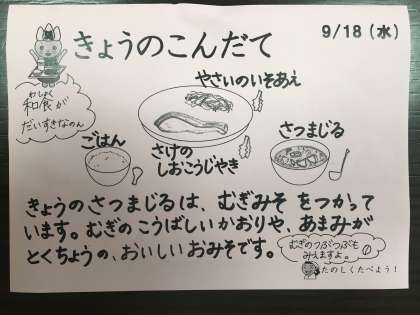 きょうのこんだて
9/18(水)
わしょく
和食が
だいすきなのん
やさいのいそあえ
ごはん
さけの
しおこうじやき
さつまじる
きょうのさつまじるは、むぎみそをつかって
います。むぎのこうばしいかおりや、あまみが
とくちょうの、おいしいおみそです。
むぎのつぶつぶも
みえますよ。
たのしくたべよう!